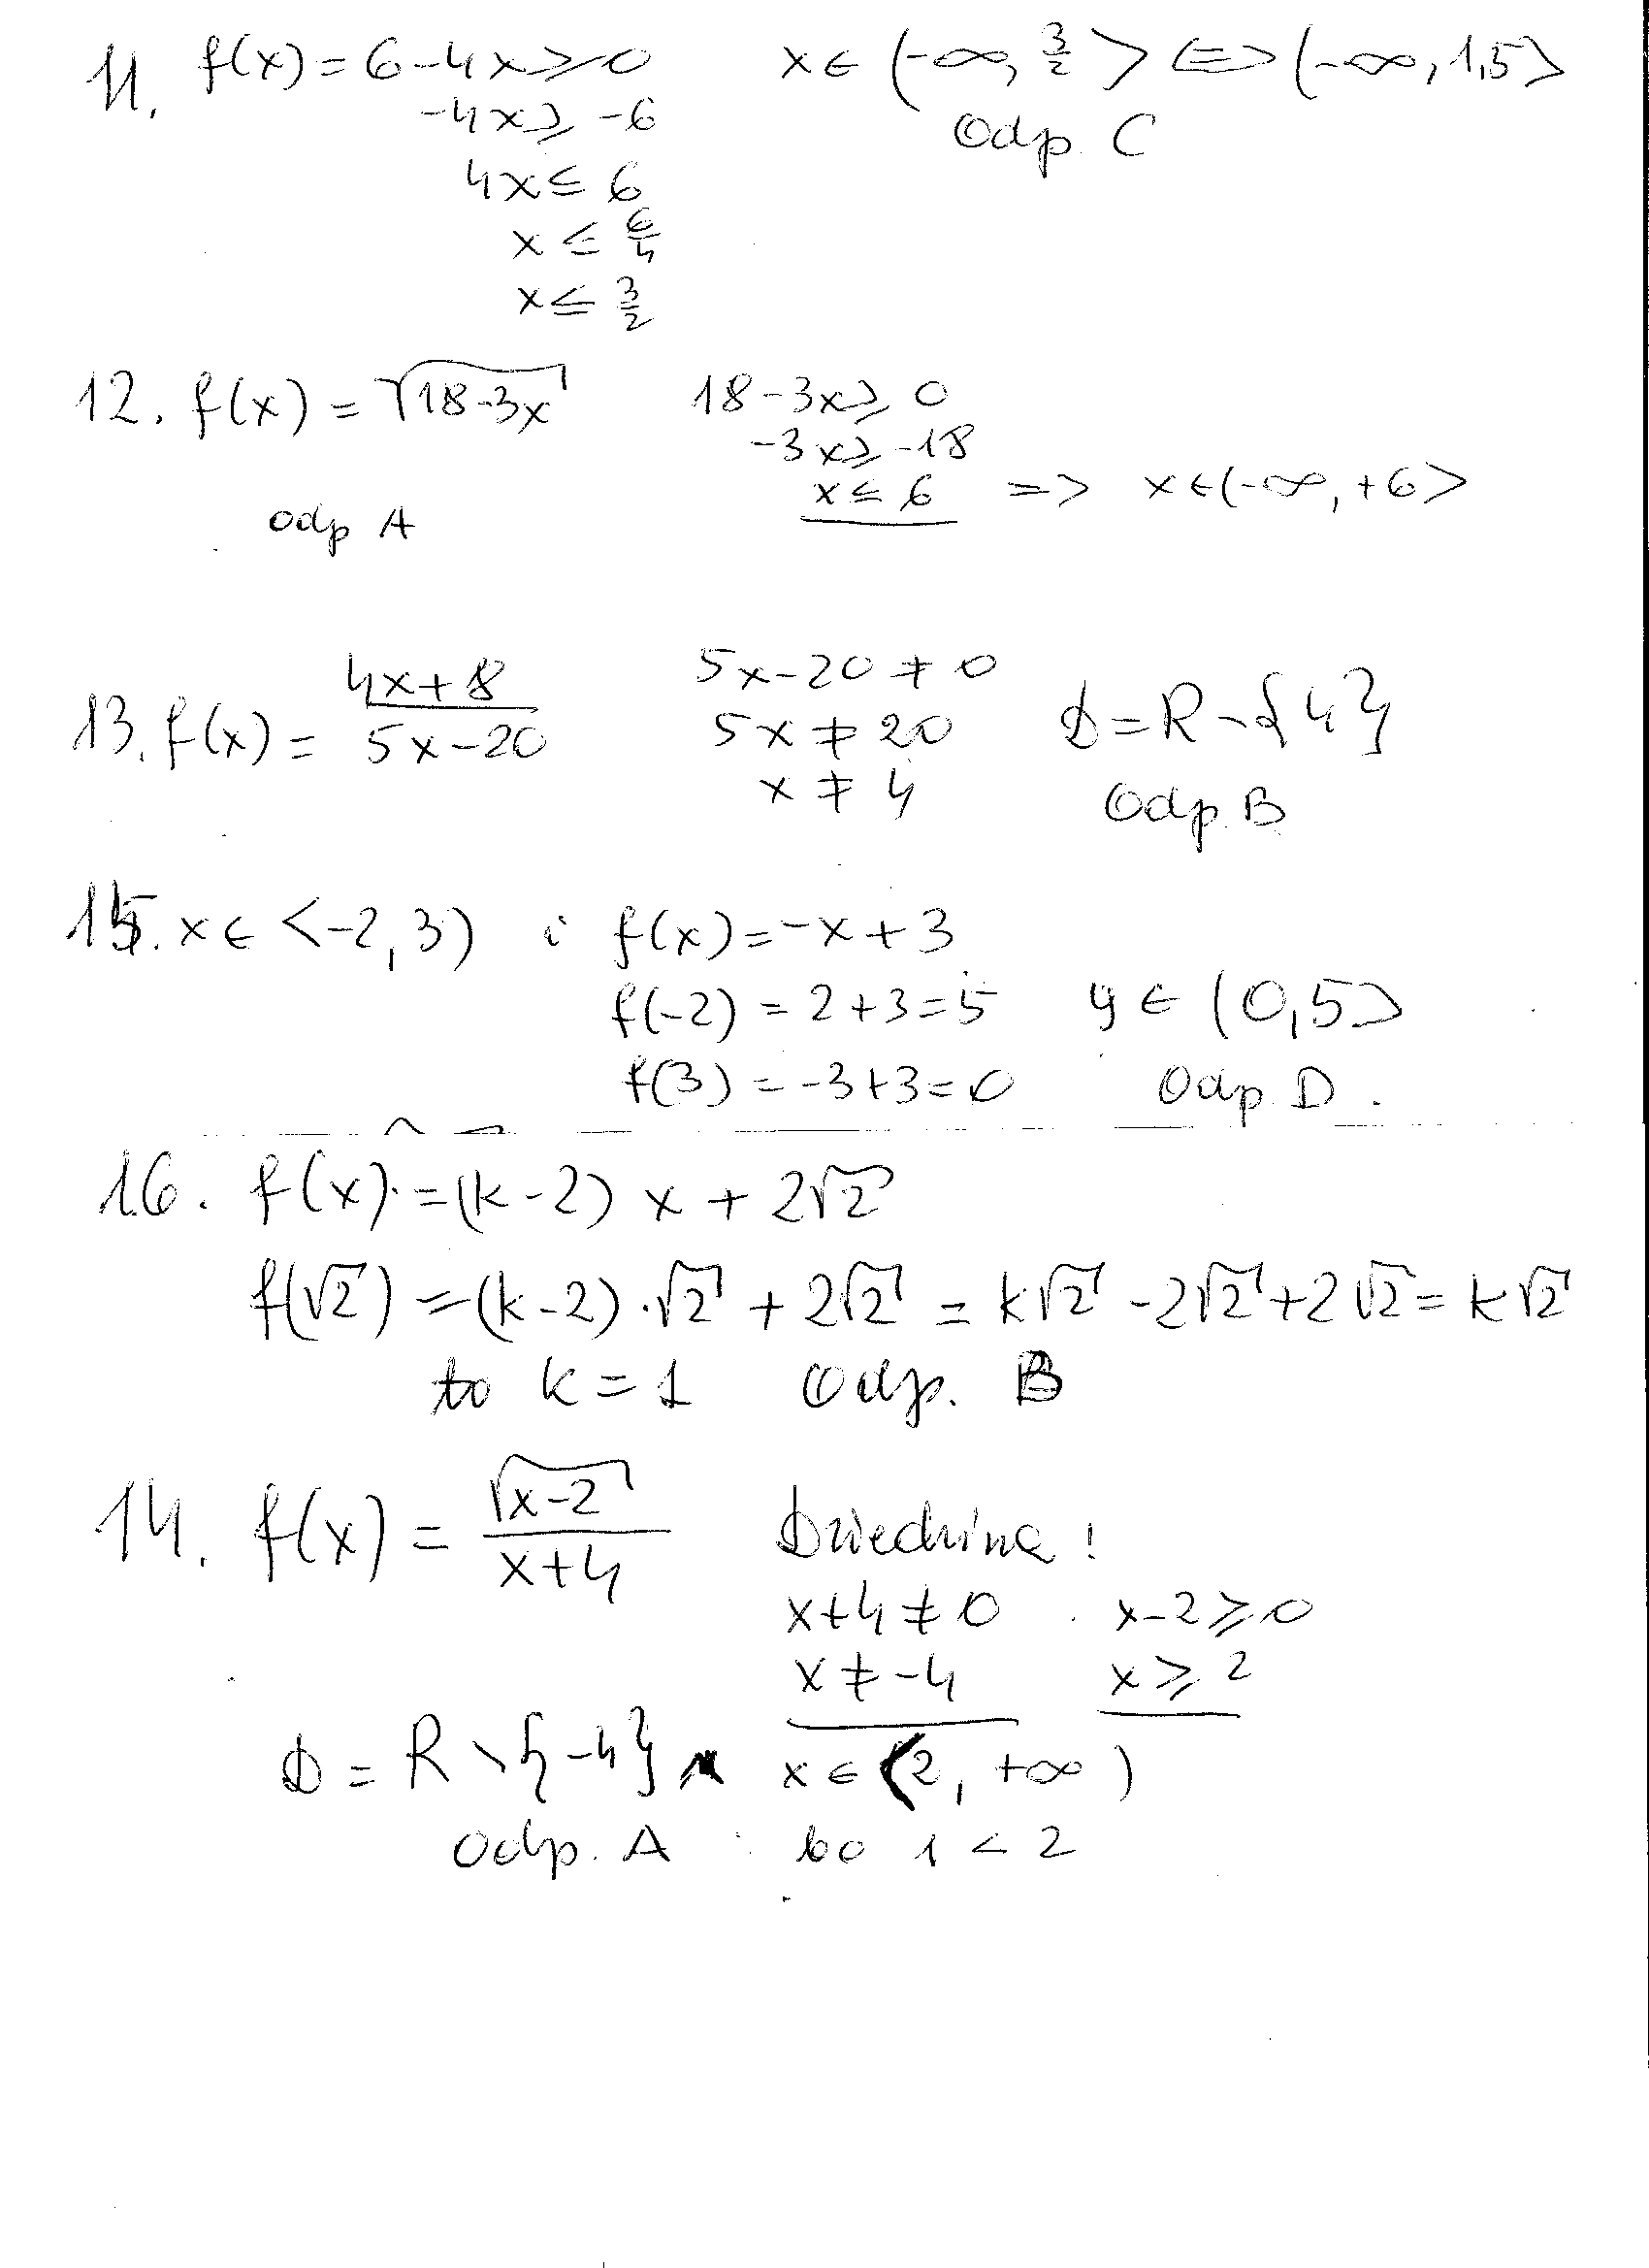 11. f(x) = 6 - 4x ⩾ 0 x ∈ (-∞, 3/2 > <=> (-∞, 1,5>
-4x ⩾ -6 Odp. C
4x ≤ 6
x ≤ 6/4
x ≤ 3/2
12. f(x) = √(18-3x) 18 - 3x ⩾ 0
-3x ⩾ -18
x ≤ 6 => x ∈ (-∞, +6>
odp A
13. f(x) = (4x+8)/(5x-20) 5x - 20 ≠ 0
5x ≠ 20 D = R \ {4}
x ≠ 4 Odp. B
15. x ∈ <-2, 3) i f(x) = -x + 3
f(-2) = 2 + 3 = 5 y ∈ (0, 5>
f(3) = -3 + 3 = 0 Odp. D.
16. f(x) = (k-2) x + 2√2
f(√2) = (k-2)·√2 + 2√2 = k√2 - 2√2 + 2√2 = k√2
to k = 1 Odp. B
14. f(x) = √(x-2)/(x+4) Dziedzina!
x+4 ≠ 0 x-2 ⩾ 0
x ≠ -4 x ⩾ 2
D = R \ {-4} x ∈ <2, +∞)
Odp. A bo 1 < 2